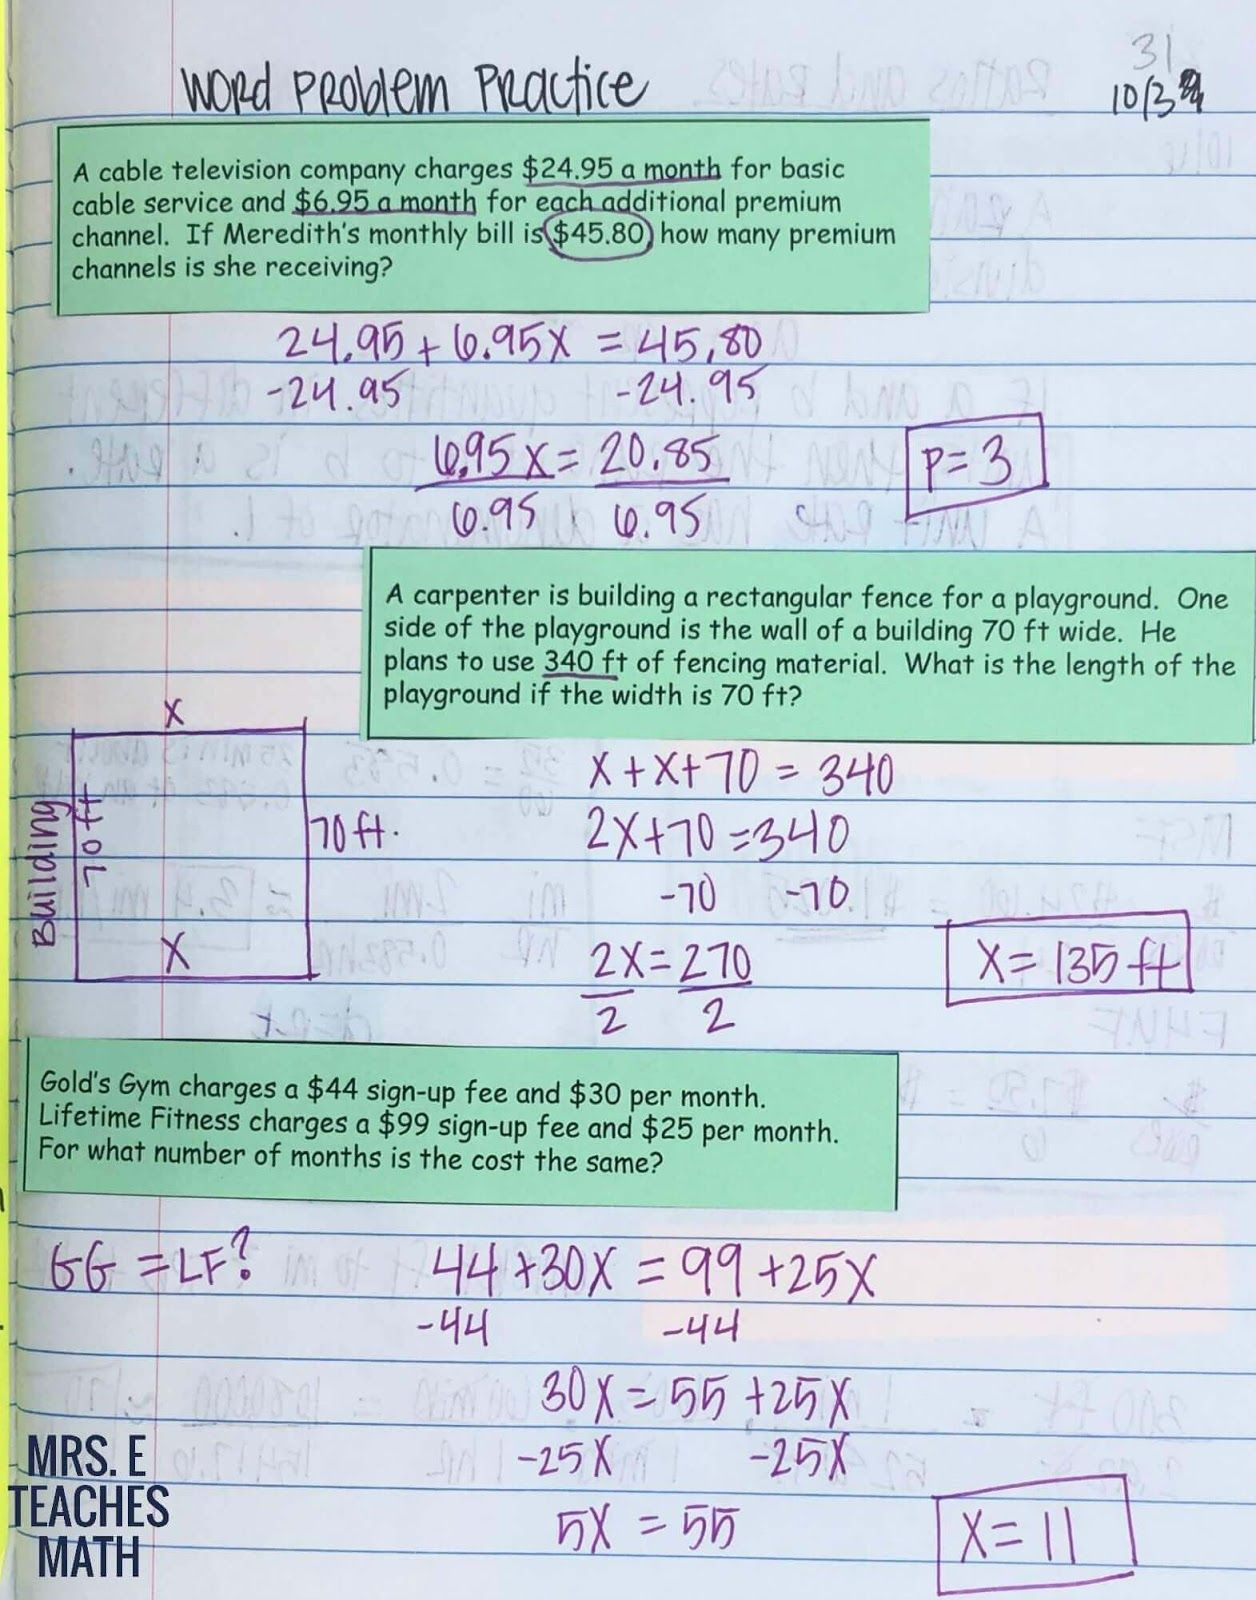 31
Word Problem Practice
10/3
A cable television company charges $24.95 a month for basic
cable service and $6.95 a month for each additional premium
channel. If Meredith's monthly bill is $45.80, how many premium
channels is she receiving?
24.95 + 6.95x = 45.80
-24.95 -24.95
6.95x = 20.85
6.95 6.95
P = 3
A carpenter is building a rectangular fence for a playground. One
side of the playground is the wall of a building 70 ft wide. He
plans to use 340 ft of fencing material. What is the length of the
playground if the width is 70 ft?
x
Building
70 ft
70 ft.
x
x + x + 70 = 340
2x + 70 = 340
-70 -70
2x = 270
2 2
x = 135 ft
Gold's Gym charges a $44 sign-up fee and $30 per month.
Lifetime Fitness charges a $99 sign-up fee and $25 per month.
For what number of months is the cost the same?
GG = LF?
44 + 30x = 99 + 25x
-44 -44
30x = 55 + 25x
-25x -25x
5x = 55
x = 11
MRS. E
TEACHES
MATH